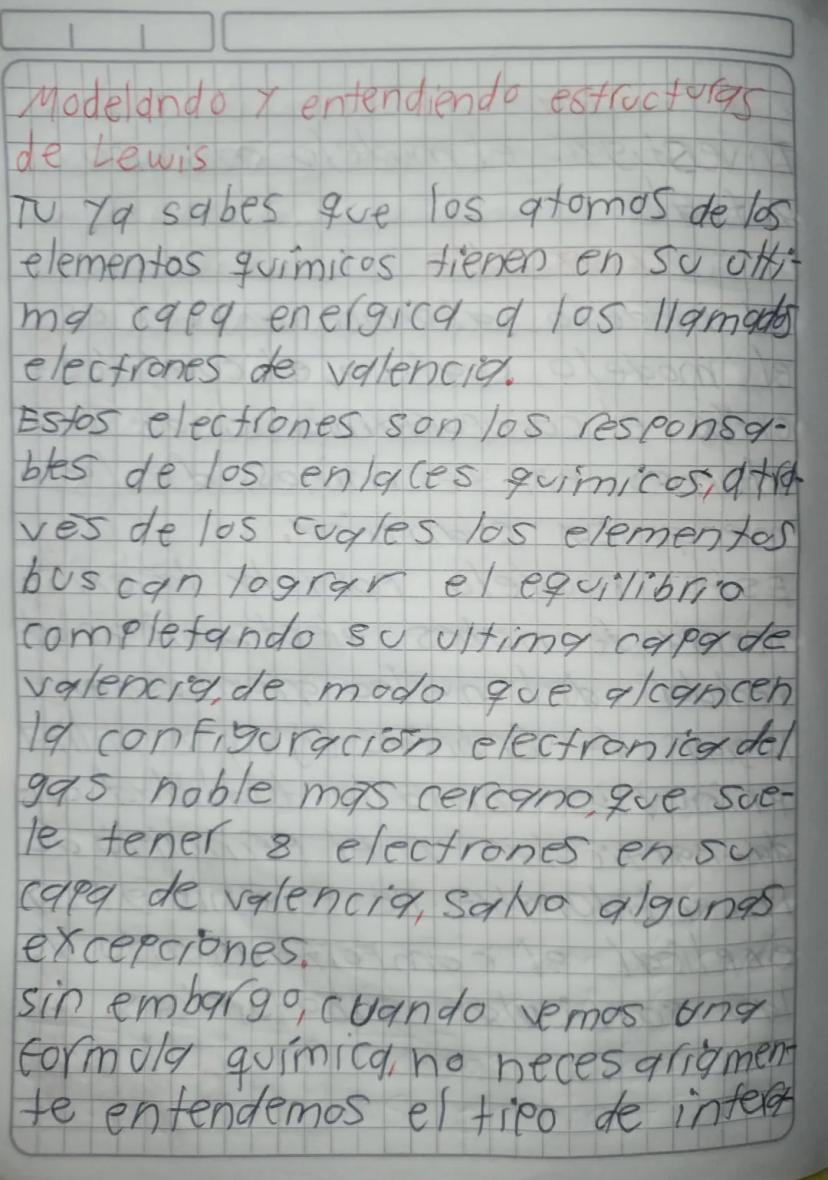 Modelando y entendiendo estructuras
de Lewis
Tu ya sabes que los atomos de los
elementos químicos tienen en su últi-
ma capa energica a los llamados
electrones de valencia.
Estos electrones son los responsa-
bles de los enlaces quimicos, a tra-
ves de los cuales los elementos
buscan lograr el equilibrio
completando su ultima capa de
valencia, de modo que alcancen
la configuración electronica del
gas noble mas cercano, que sue-
le tener 8 electrones en su
capa de valencia, salvo algunas
excepciones.
sin embargo, cuando vemos una
formula química, no necesariamen-
te entendemos el tipo de intera